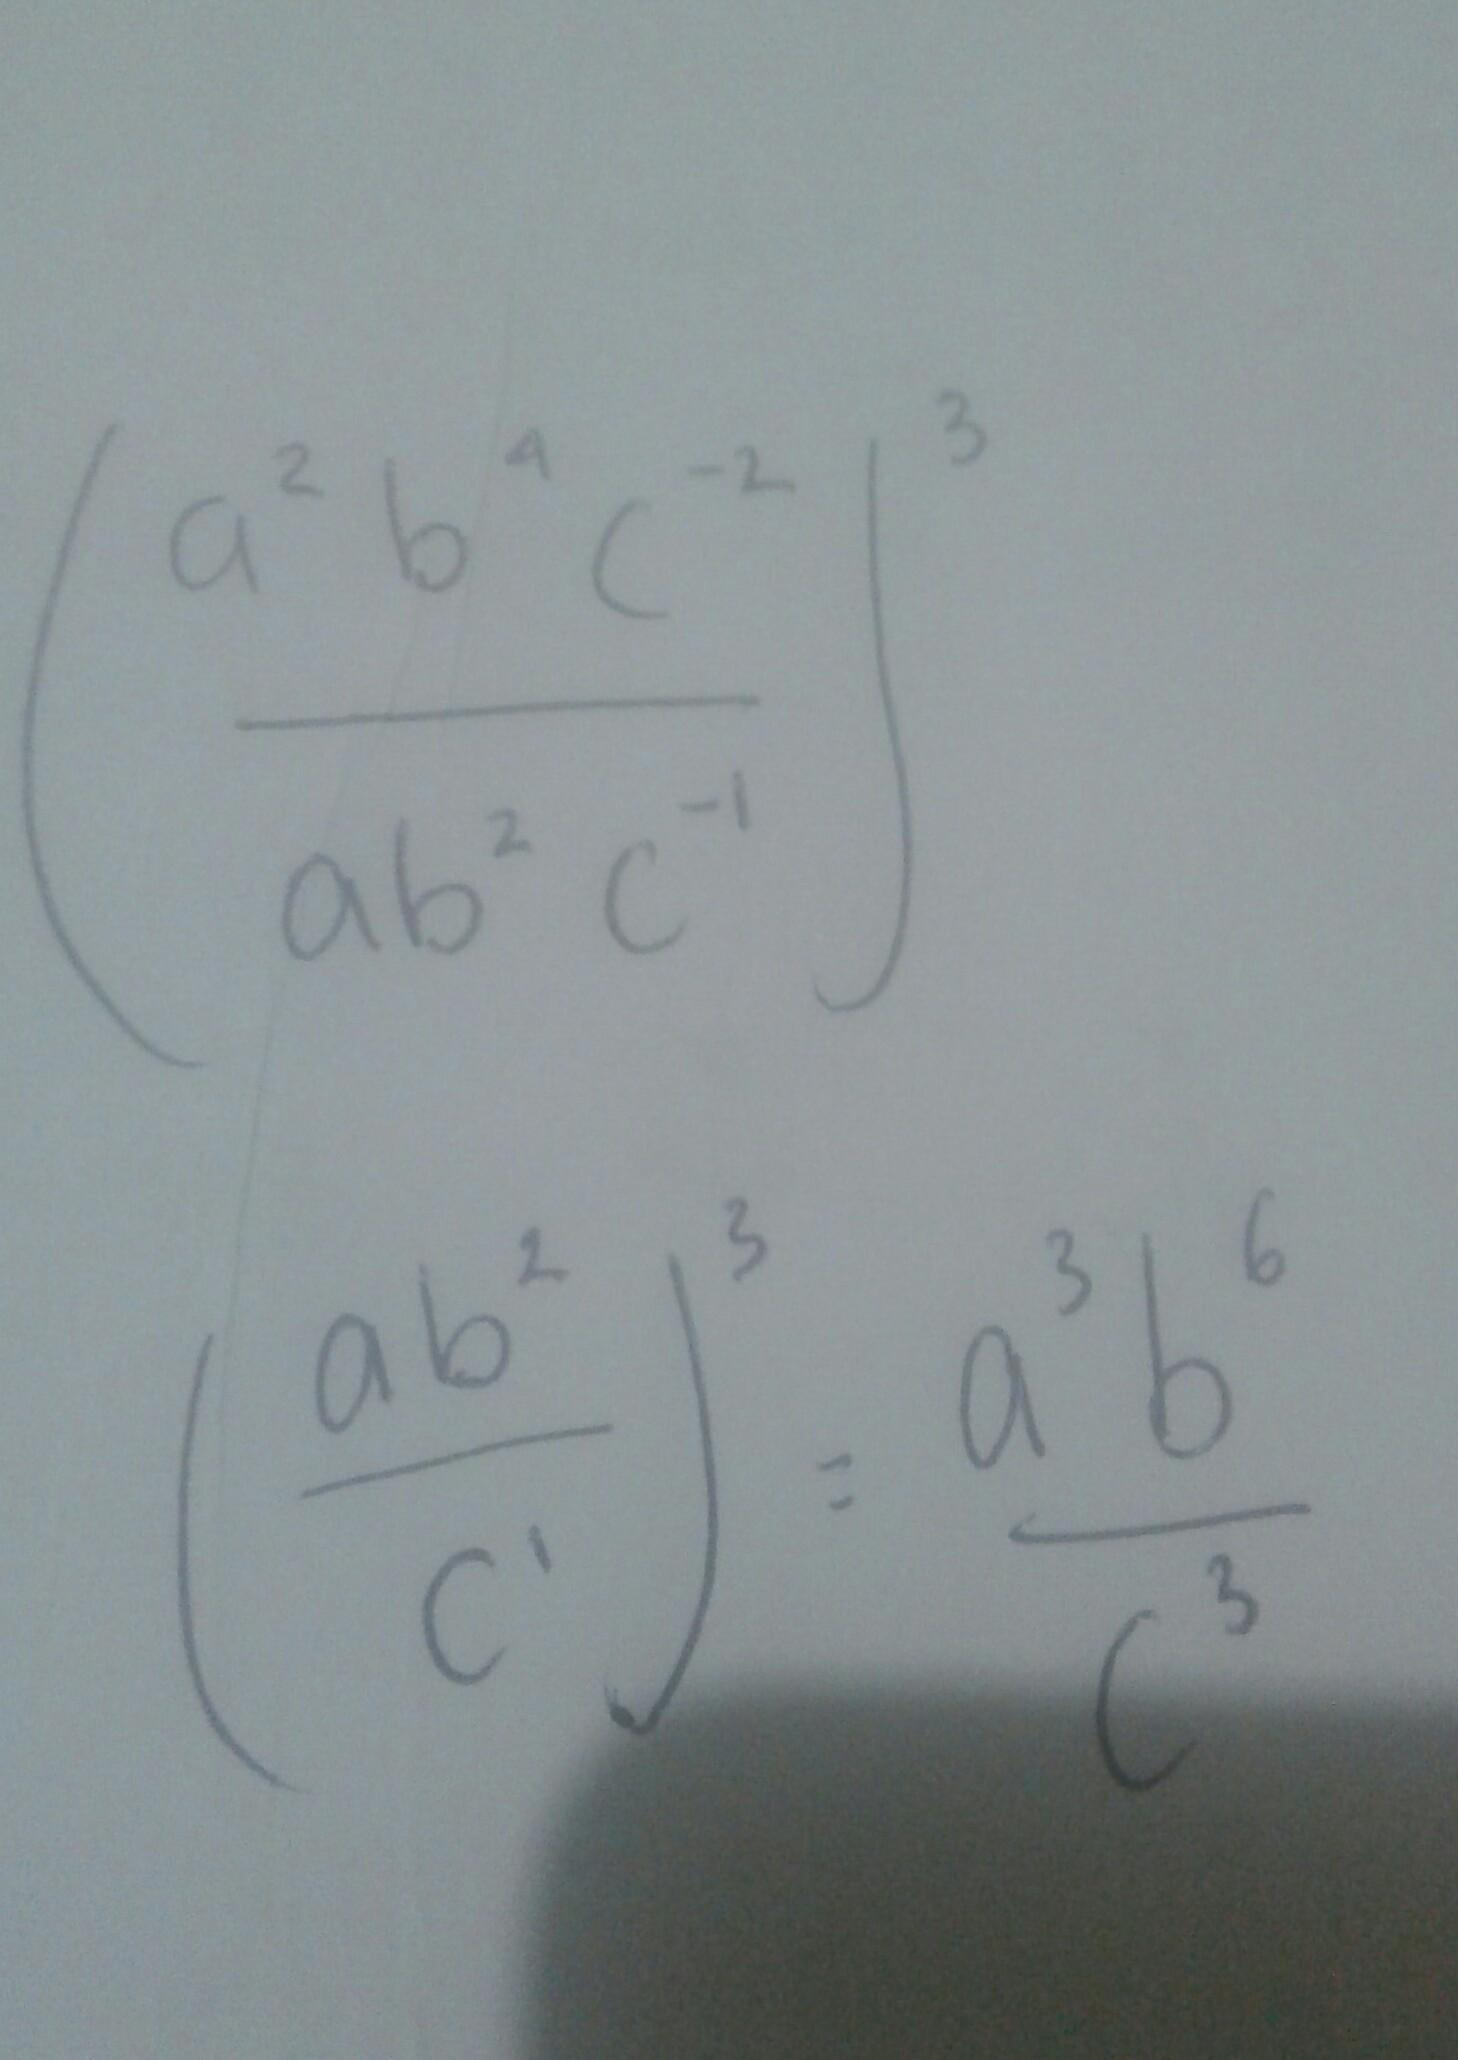 (a² b⁴ c⁻² / ab² c⁻¹)³
(ab² / c¹)³ = a³ b⁶ / c³